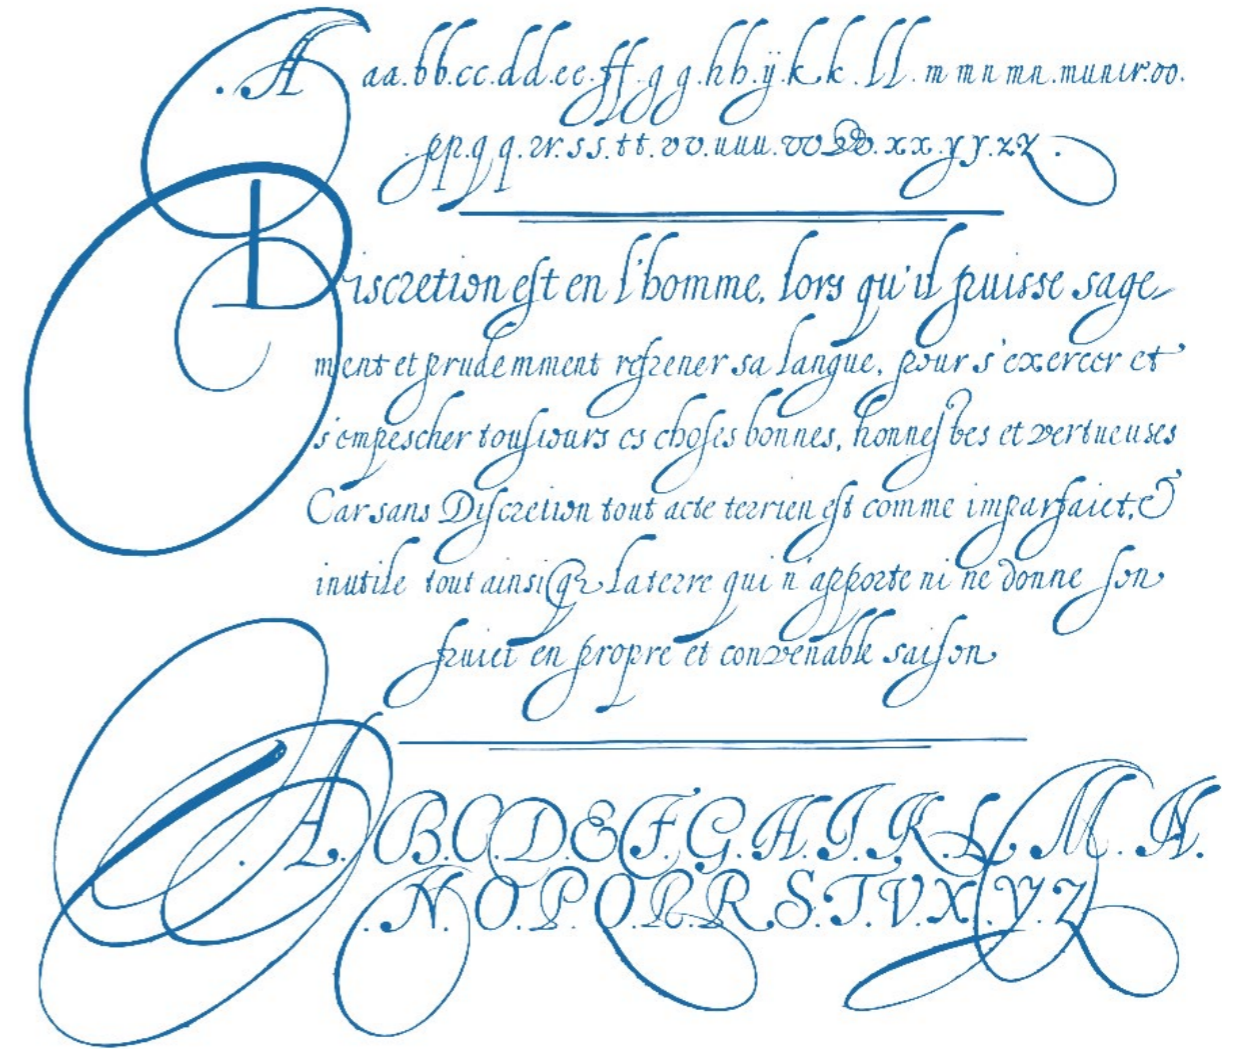 .A aa.bb.cc.dd.ee.ff.gg.hh.ij.kk.ll.mmnmn.munir.oo.
.pp.qq.rr.ss.tt.vv.uuu.vvw.xx.yy.zz.
Discretion est en l'homme, lors qu'il puisse sage-
ment et prudemment refrener sa langue, pour s'exercer et
s'empescher tousiours es choses bonnes, honnestes et vertueuses
Car sans Discretion tout acte terrien est comme imparfaict, &
inutile tout ainsi q; la terre qui n'apporte ni ne donne son
fruict en propre et convenable saison
.A.B.C.D.E.F.G.H.I.K.L.M.N.
.N.O.P.Q.R.R.S.T.V.X.Y.Z